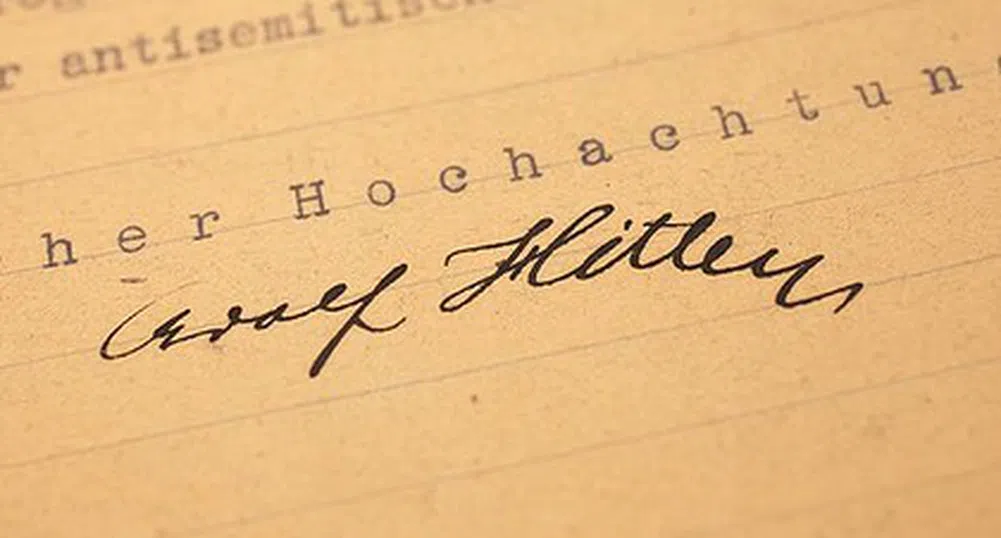 r antisemitisch
her Hochachtun
Adolf Hitler